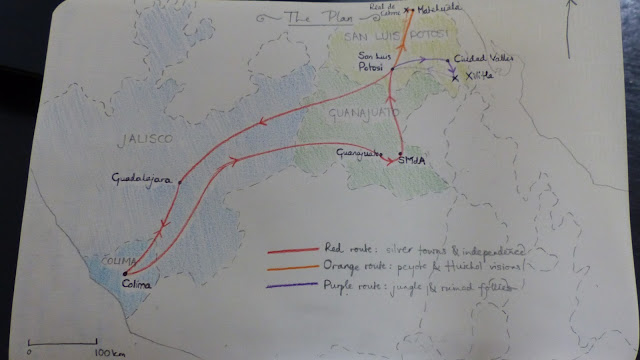 The Plan
Real de Catorce
Matehuala
SAN LUIS POTOSI
San Luis Potosi
Ciudad Valles
Xilitla
GUANAJUATO
JALISCO
Guanajuato
SMdA
Guadalajara
COLIMA
Colima
Red route: silver towns & independence
Orange route: peyote & Huichol visions
Purple route: jungle & ruined follies
0 100km